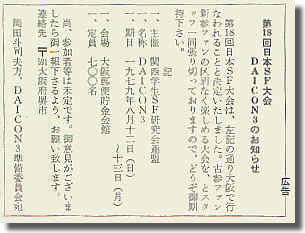 広告
第18回日本SF大会
DAICON3のお知らせ
第18回日本SF大会は、左記の通り大阪で行
なわれることと決定いたしました。古参ファン
新参ファンの区別なく楽しめる大会を、とスタ
ッフ一同張り切っておりますので、どうぞ御期
待下さい。
記
一、主催 関西学生SF研究会連盟
一、名称 DAICON3
一、期日 一九七九年八月十二日(日)
～十三日(月)
一、会場 大阪郵便貯金会館
一、定員 七〇〇名
尚、参加者等は未定です。御意見がございま
したら御一報下さるよう、お願い致します。
連絡先 〒 大阪府堺市
岡田斗司夫方、DAICON3準備委員会宛